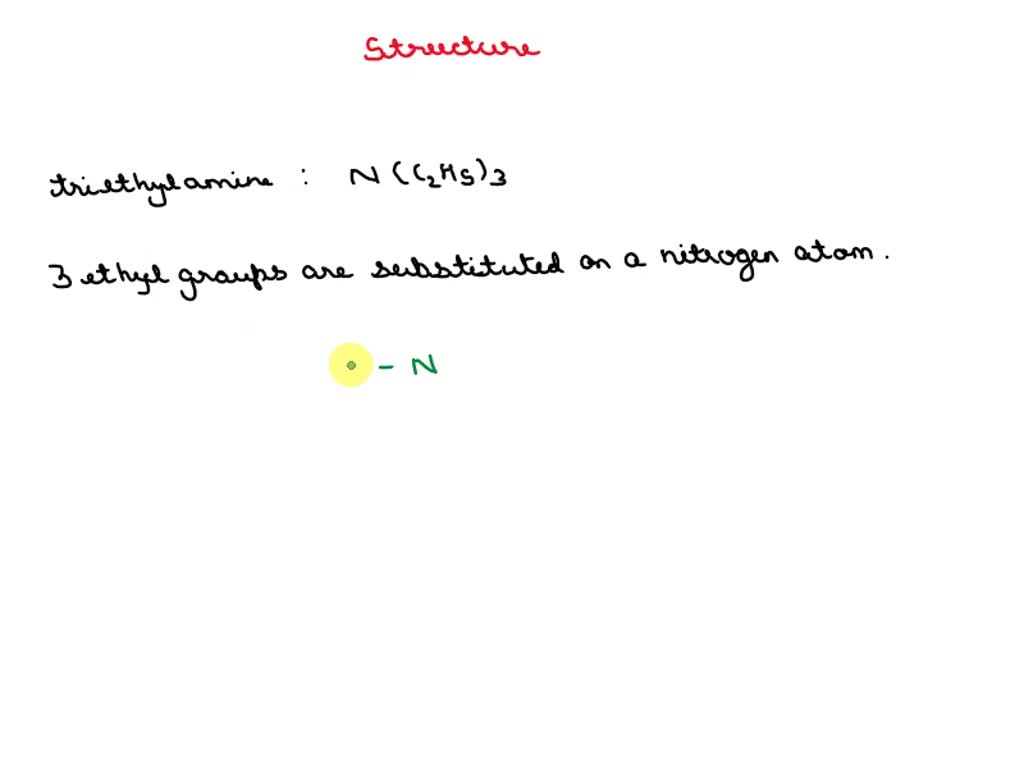 Structure
triethylamine : N(C₂H₅)₃
3 ethyl groups are substituted on a nitrogen atom.
- N